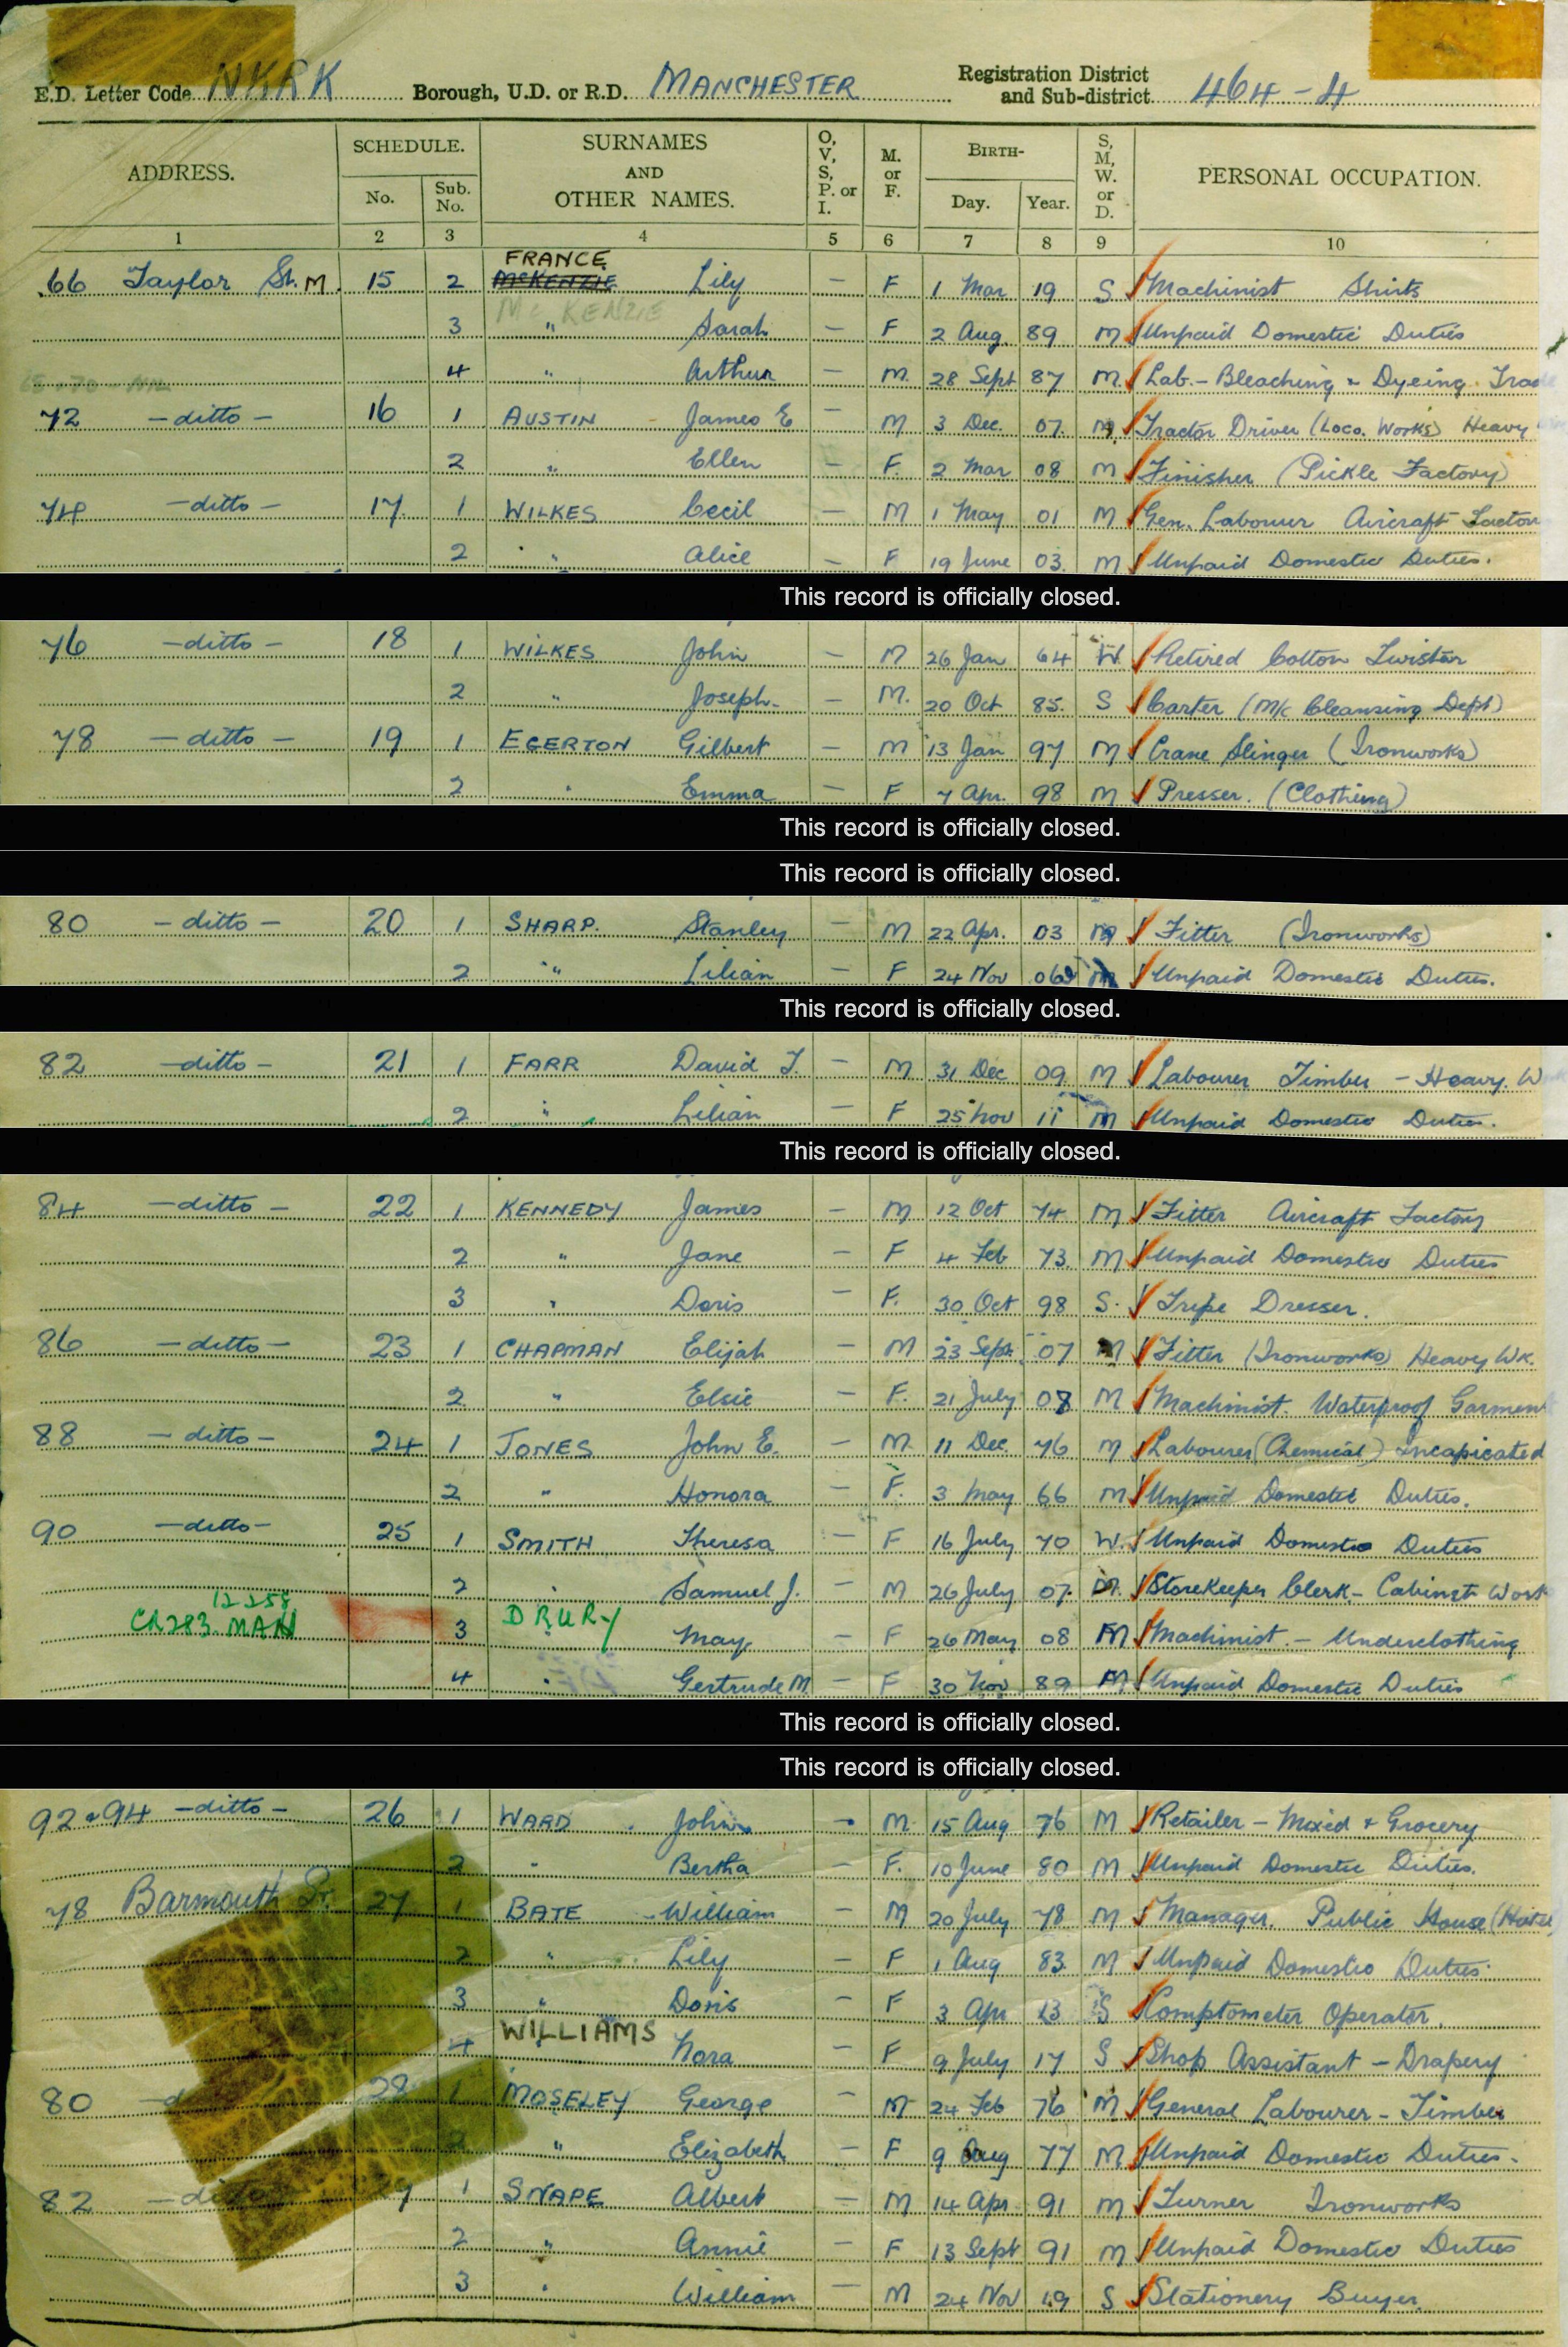 E.D. Letter Code NKRK Borough, U.D. or R.D. MANCHESTER Registration District and Sub-district 464-4
ADDRESS. SCHEDULE. No. Sub. No. SURNAMES AND OTHER NAMES. O, V, S, P. or I. M. or F. BIRTH- Day. Year. S, M, W. or D. PERSONAL OCCUPATION.
1 2 3 4 5 6 7 8 9 10
FRANCE
66 Taylor St. M. 15 2 McKENZIE Lily — F 1 Mar 19 S Machinist Shirts
Mc KENZIE
3 " Sarah — F 2 Aug 89 M Unpaid Domestic Duties
4 " Arthur — M. 28 Sept 87 M. Lab. - Bleaching & Dyeing Trade
72 - ditto - 16 1 AUSTIN James E — M 3 Dec. 07. M. Tractor Driver (Loco. Works) Heavy
2 " Ellen — F. 2 Mar 08 M Finisher (Pickle Factory)
74 - ditto - 17 1 WILKES Cecil — M 1 May 01 M Gen. Labourer Aircraft Factory
2 " Alice — F 19 June 03. M Unpaid Domestic Duties.
This record is officially closed.
76 - ditto - 18 1 WILKES John — M 26 Jan 64 W. Retired Cotton Twister
2 " Joseph — M. 20 Oct 85. S Carter (M/c Cleansing Dept)
78 - ditto - 19 1 EGERTON Gilbert — M 13 Jan 97 M Crane Slinger (Ironworks)
2 " Emma — F 7 Apr. 98 M Presser. (Clothing)
This record is officially closed.
This record is officially closed.
80 - ditto - 20 1 SHARP. Stanley — M 22 Apr. 03 M Fitter (Ironworks)
2 " Lilian — F 24 Nov 06 M Unpaid Domestic Duties.
This record is officially closed.
82 - ditto - 21 1 FARR David T. — M 31 Dec 09 M Labourer Timber - Heavy. W
2 " Lilian — F 25 Nov 11 M Unpaid Domestic Duties.
This record is officially closed.
84 - ditto - 22 1 KENNEDY James — M 12 Oct 74 M Fitter Aircraft Factory
2 " Jane — F 4 Feb 73. M Unpaid Domestic Duties
3 " Doris — F. 30 Oct 98 S. Tripe Dresser.
86 - ditto - 23 1 CHAPMAN Elijah — M 23 Sept. 07 M Fitter (Ironworks) Heavy Wk.
2 " Elsie — F. 21 July 08 M Machinist. Waterproof Garment
88 - ditto - 24 1 JONES John E. — M 11 Dec. 76 M Labourer (Chemical) Incapicated
2 " Honora — F. 3 May 66 M Unpaid Domestic Duties.
90 - ditto - 25 1 SMITH Theresa — F 16 July 70 W. Unpaid Domestic Duties
2 " Samuel J. — M 26 July 07. M. Storekeeper Clerk - Cabinet Work
12.2.58
CR283 MAN 3 DRURY May — F 26 May 08 M Machinist. - Underclothing
4 " Gertrude M. — F 30 Nov 89 M Unpaid Domestic Duties
This record is officially closed.
This record is officially closed.
92 & 94 - ditto - 26 1 WARD John — M 15 Aug 76 M Retailer - Mixed & Grocery
2 " Bertha — F. 10 June 80 M Unpaid Domestic Duties.
78 Barmouth St. 27 1 BATE William — M 20 July 78 M Manager. Public House (Hotel
2 " Lily — F 1 Aug 83. M Unpaid Domestic Duties
3 " Doris — F 3 Apr 13 S Comptometer Operator.
4 WILLIAMS Nora — F 9 July 17 S Shop Assistant - Drapery
80 28 1 MOSELEY George — M 24 Feb 76 M General Labourer - Timber
2 " Elizabeth — F 9 Aug 77 M Unpaid Domestic Duties.
82 - ditto 29 1 SNAPE Albert — M 14 Apr 91 M Turner Ironworks
2 " Annie — F 13 Sept 91 M Unpaid Domestic Duties
3 " William — M 24 Nov 19 S Stationery Buyer.